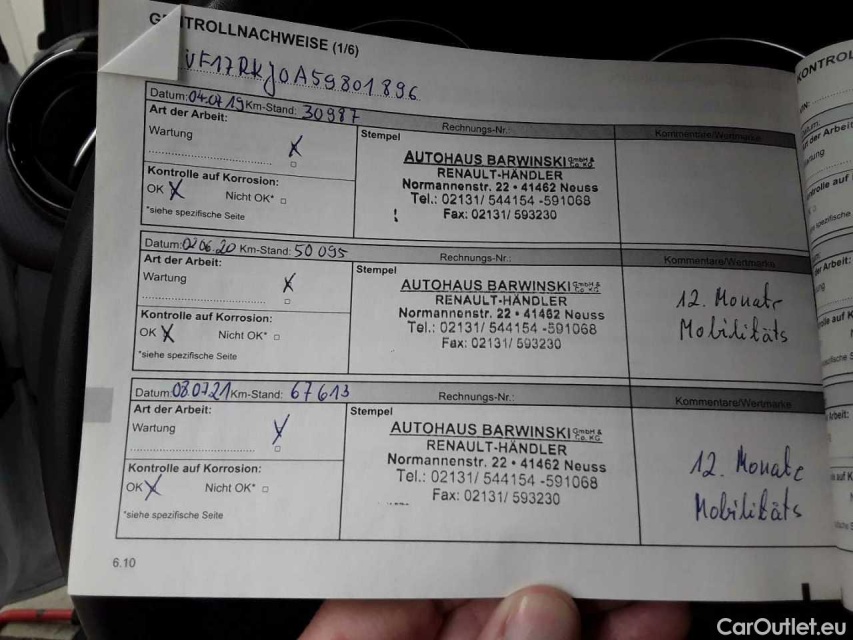 KONTROLLNACHWEISE (1/6)
VF17RKJ0A59801896
Datum: 04.07.19 Km-Stand: 30987 Rechnungs-Nr.: Kommentare/Wertmarke
Art der Arbeit:
Wartung X
Kontrolle auf Korrosion:
OK X Nicht OK*
*siehe spezifische Seite
Stempel
AUTOHAUS BARWINSKI GmbH & Co. KG
RENAULT-HÄNDLER
Normannenstr. 22 • 41462 Neuss
Tel.: 02131/ 544154 -591068
Fax: 02131/ 593230
Datum: 02.06.20 Km-Stand: 50095 Rechnungs-Nr.: Kommentare/Wertmarke
Art der Arbeit:
Wartung X
Kontrolle auf Korrosion:
OK X Nicht OK*
*siehe spezifische Seite
Stempel
AUTOHAUS BARWINSKI GmbH & Co. KG
RENAULT-HÄNDLER
Normannenstr. 22 • 41462 Neuss
Tel.: 02131/ 544154 -591068
Fax: 02131/ 593230
12. Monate
Mobilitäts
Datum: 08.07.21 Km-Stand: 67613 Rechnungs-Nr.: Kommentare/Wertmarke
Art der Arbeit:
Wartung X
Kontrolle auf Korrosion:
OK X Nicht OK*
*siehe spezifische Seite
Stempel
AUTOHAUS BARWINSKI GmbH & Co. KG
RENAULT-HÄNDLER
Normannenstr. 22 • 41462 Neuss
Tel.: 02131/ 544154 -591068
Fax: 02131/ 593230
12. Monate
Mobilitäts
6.10
CarOutlet.eu